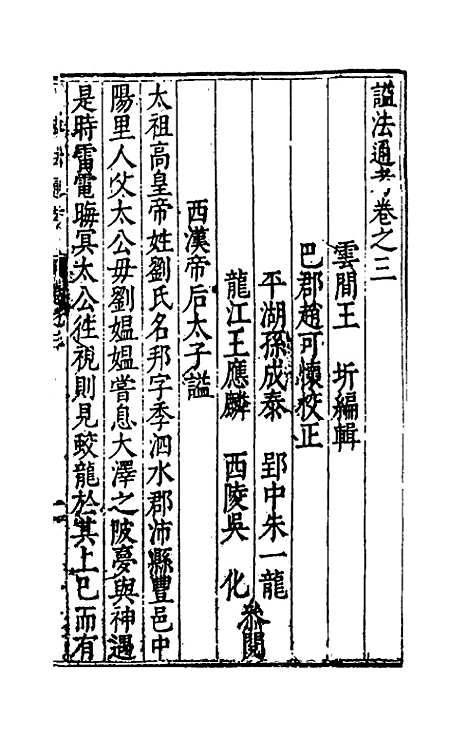 諡法通考卷之三
雲間王　圻編輯
巴郡趙可懷校正
平湖孫成泰　郢中朱一龍
龍江王應麟　西陵吳　化
參閱
西漢帝后太子諡
太祖高皇帝姓劉氏名邦字季泗水郡沛縣豐邑中
陽里人父太公毋劉媼媼嘗息大澤之陂夢與神遇
是時雷電晦冥太公往視則見蛟龍於其上巳而有